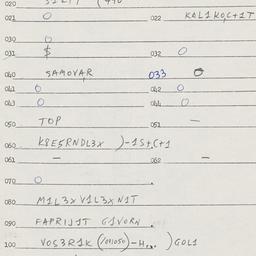 020
021 O 022 KOL1KOC+1T
030 O
031 $ 032 O
040 SAMOVAR 033 O
041 O 042 O
043 O 044 O
050 TOP 051 —
060 K8E5RNDL3X )-1S+C+1
061 — 062 —
070 O
080 M1L3X V1L3XN1T
090 FAPRIJ1T G1VORN
100 VOS3R1K )GOL1